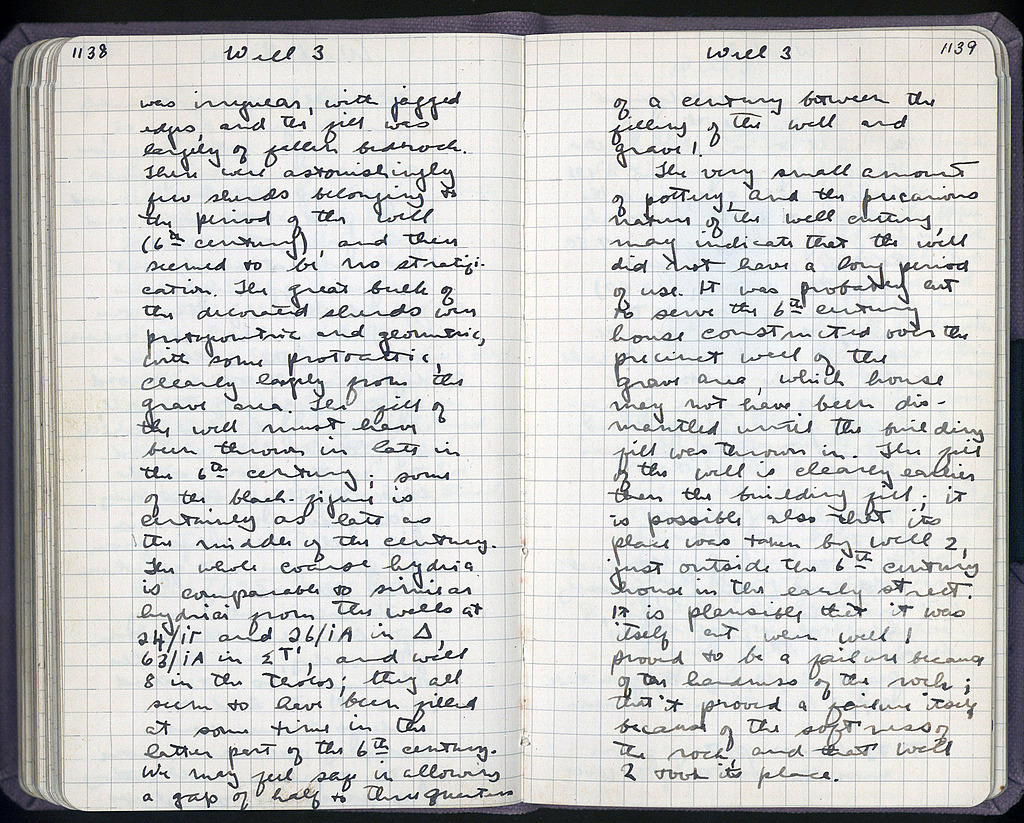 1138
Well 3
was irregular, with jagged
edges, and the fill was
largely of fallen bedrock.
There were astonishingly
few sherds belonging to
the period of the well
(6th century), and there
seemed to be no stratifi-
cation. The great bulk of
the decorated sherds were
protogeometric and geometric,
with some protoattic,
clearly largely from the
grave area. The fill of
the well must have
been thrown in late in
the 6th century; some
of the black-figure is
certainly as late as
the middle of the century.
The whole coarse hydria
is comparable to similar
hydriai from the wells at
24/ΙΓ and 26/ΙΑ in Δ,
63/ΙΑ in ΣΤ', and well
8 in the Tholos; they all
seem to have been filled
at some time in the
latter part of the 6th century.
We may feel safe in allowing
a gap of half to three quarters
1139
Well 3
of a century between the
filling of the well and
grave 1.
The very small amount
of pottery, and the precarious
nature of the well cutting,
may indicate that the well
did not have a long period
of use. It was probably cut
to serve the 6th century
house constructed over the
precinct wall of the
grave area, which house
may not have been dis-
mantled until the building
fill was thrown in. The fill
of the well is clearly earlier
than the building fill; it
is possible also that its
place was taken by well 2,
just outside the 6th century
house in the early street.
It is plausible that it was
itself cut when well 1
proved to be a failure because
of the hardness of the rock;
that it proved a failure itself
because of the softness of
the rock, and that well
2 took its place.